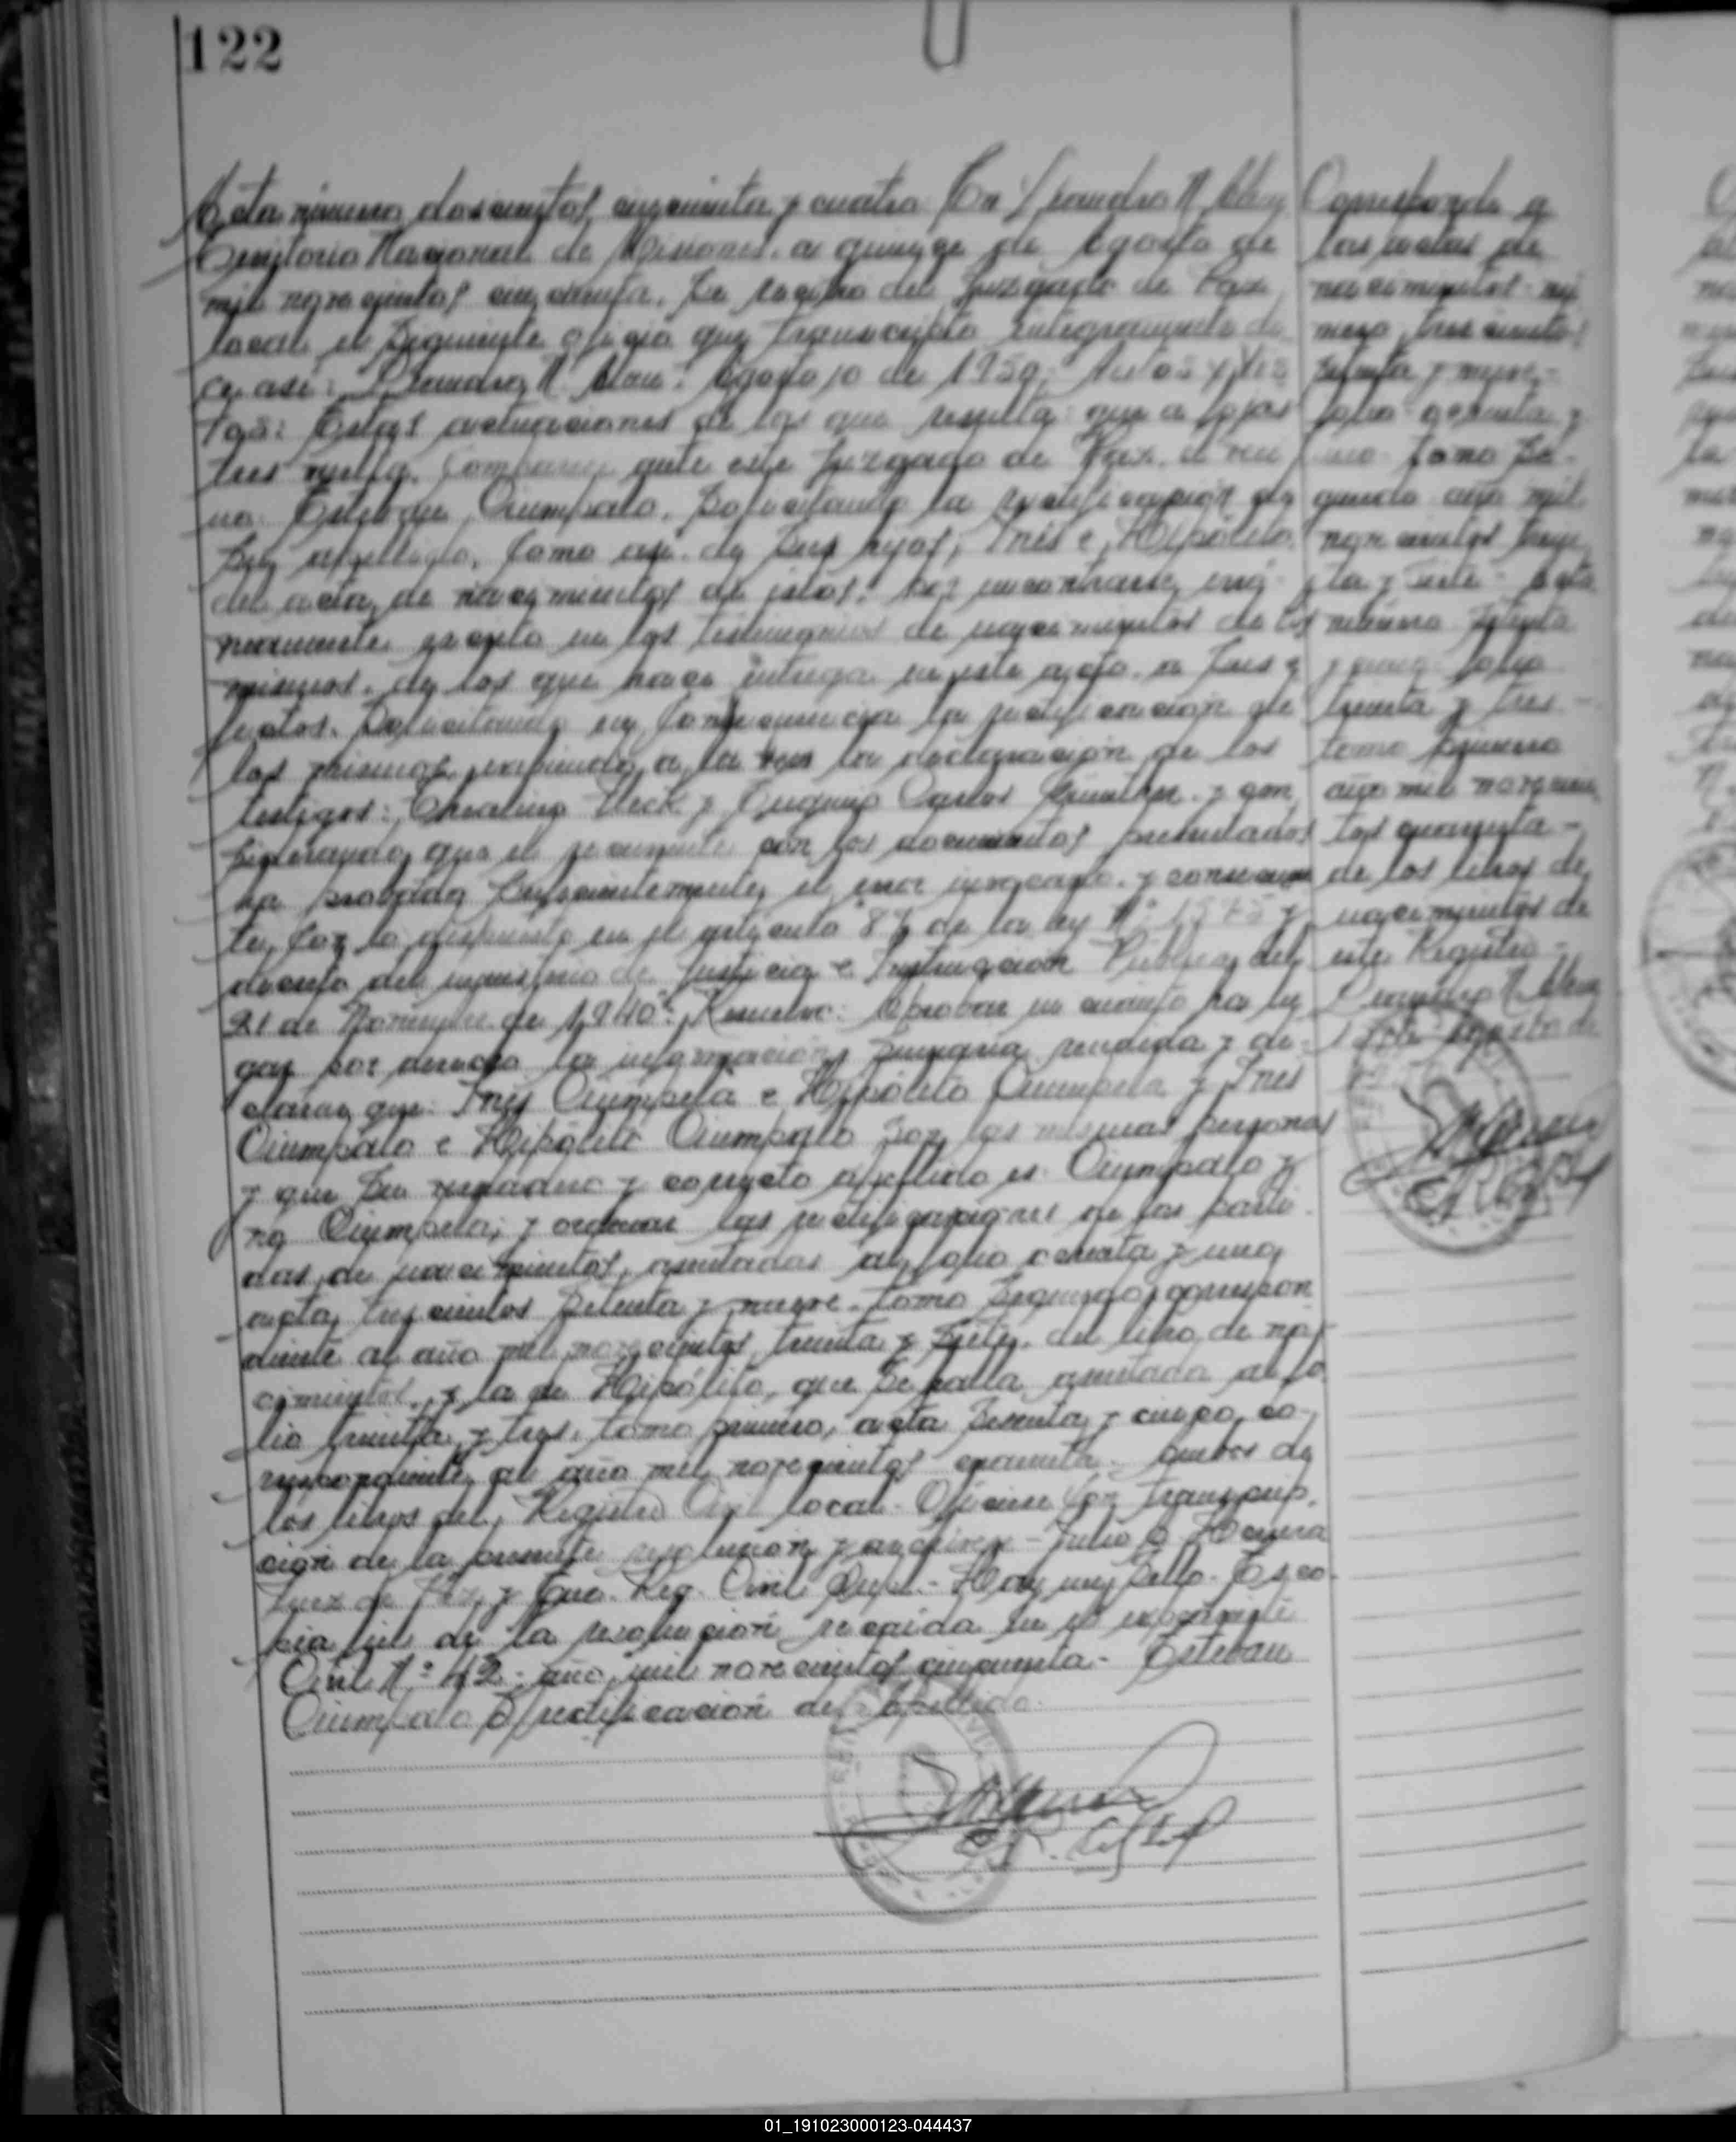 122
Acta número doscientos cincuenta y cuatro. En Leandro N. Alem
Territorio Nacional de Misiones, a quinze de Agosto de
mil novecientos cincuenta. Se recibió del Juzgado de Paz
local el siguiente oficio que transcripto integramente di
ce así: Leandro N. Alem. Agosto 10 de 1950. Autos y Vis
tos: Estas actuaciones de las que resulta: que a fojas
tres vuelta. Comparece ante este Juzgado de Paz, el
Esteban Ciumpalo. Solicitando la rectificación de
su apellido, como así de sus hijos, Inés e Hipólito.
del acta de nacimientos de estos, por encontrarse erró
neamente escrito en los testimonios de nacimientos de los
mismos, de los que hace entrega en este acto, a sus e
fectos. Solicitando en consecuencia la rectificación de
los mismos, a la vez la declaración de los
testigos: Heck y Eugenio Carlos y con
siderando que el recurrente con los documentos presentados
ha probado suficientemente el error invocado, y
te, con lo dispuesto en el artículo 87 de la ley Nº 1575 y
decreto del ministerio de Justicia e Instrucción Pública del
21 de Noviembre de 1940. Resuelvo: Aprobar en cuanto ha lu
gar por derecho la información sumaria rendida y de-
clarar que: Inés Ciumpela e Hipólito Ciumpela y Inés
Ciumpalo e Hipólito Ciumpalo son las mismas personas
y que su verdadero y correcto apellido es Ciumpalo y
no Ciumpela; y ordenar las rectificaciones de las parti
das de nacimientos, anotadas al folio ochenta y uno,
acta trescientos setenta y nueve. tomo segundo, correspon
diente al año mil novecientos treinta y siete, del libro de na
cimientos, y la de Hipólito, que se halla anotada al fo
lio treinta y tres, tomo primero, acta y cinco, co-
rrespondiente al año mil novecientos cuarenta. ambos de
los libros del Registro Civil local. Ofíciese con transcrip.
ción de la presente resolución y archívese - Julio Herrera
Juez de Paz y Enc. Reg. Civil Supl.- Hay un sello. Es co-
pia fiel de la resolución recaída en el expediente
Civil Nº 42 - año mil novecientos cincuenta - Esteban
Ciumpalo S/rectificación de Apellido.
Corresponde a
las actas de
nacimientos nú
mero trescientos
setenta y nueve -
folio ochenta y
uno tomo se-
gundo año mil
novecientos trein
ta y siete - Acta
número
y folio
treinta y tres -
tomo primero
año mil novecien
tos cuarenta -
de los libros de
nacimientos de
este Registro -
Leandro N. Alem
Agosto de
01_191023000123-044437